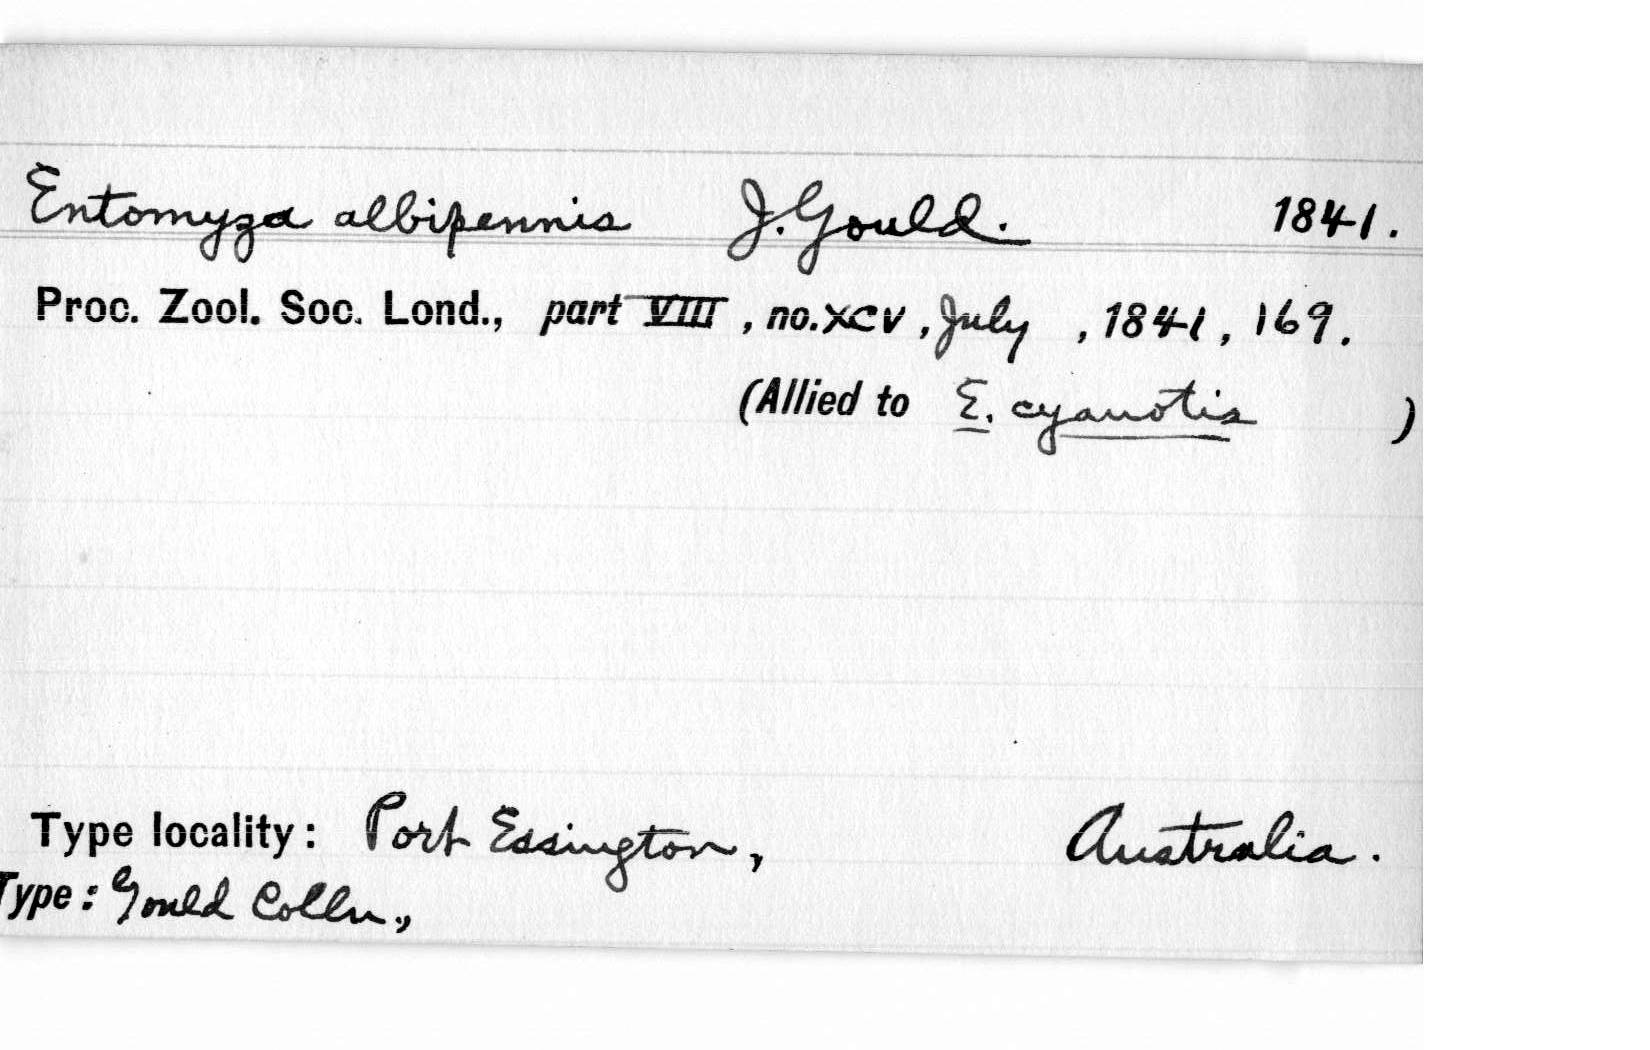 Entomyza albipennis J. Gould. 1841.
Proc. Zool. Soc. Lond., part VIII, no. XCV, July, 1841, 169.
(Allied to E. cyanotis )
Type locality: Port Essington, Australia.
Type: Gould Colln.,